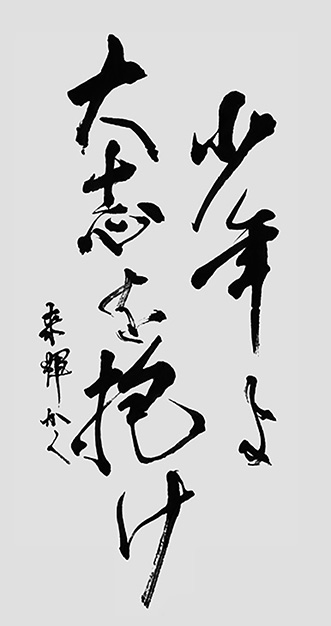 少年よ
大志を抱け
来輝かく